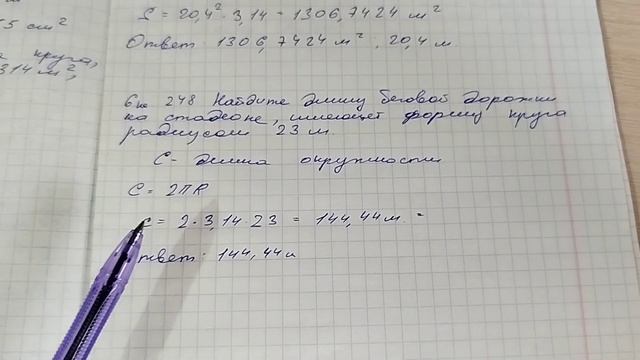 5 см²
круга,
314 м²,
S = 20,4² · 3,14 = 1306,7424 м²
Ответ: 1306,7424 м², 20,4 м
6 кл 248 Найдите длину беговой дорожки
на стадионе, имеющей форму круга
радиусом 23 м.
C - длина окружности
C = 2πR
C = 2 · 3,14 · 23 = 144,44 м.
Ответ: 144,44 м